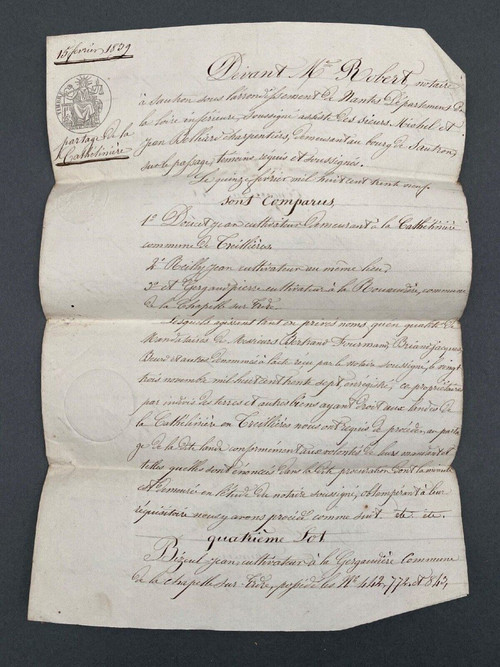 15 février 1839
partage de la
Cathelinière
Devant Me Robert notaire
à Sautron sous l'arrondissement de Nantes Département de
la Loire inférieure, Soussigné assisté des Sieurs Michel et
Jean charpentiers, demeurant au bourg de Sautron,
sur le passage, témoins requis et soussignés.
Le quinze février mil huit cent trente neuf
sont Comparus
1o Doucet jean cultivateur demeurant à la Cathelinière
commune de Treillières
2o jean cultivateur au même lieu
3o Et pierre cultivateur à la commune
de la Chapelle sur Erdre
Lesquels agissant tant en privé noms, qu'en qualité de
Mandataires de Messieurs Bertrand jacques
et autres dénommés à l'acte reçu par le notaire soussigné, le vingt
trois novembre mil huit cent trente sept, enregistré, et propriétaires
par indivis des terres et autres biens ayant droit aux landes de
la Cathelinière en Treillières nous ont requis de procéder au parta
ge de la dite lande conformément aux volontés de leurs mandants et
telles quelles sont énoncées dans la dite procuration dont la minute
est demeurée en l'étude du notaire soussigné, obtempérant à leur
réquisitoire nous y avons procédé comme suit etc etc
quatrième Lot
Bizeul jean cultivateur à la Commune
de la Chapelle sur Erdre, possède les Nos 442, 772 et 843,